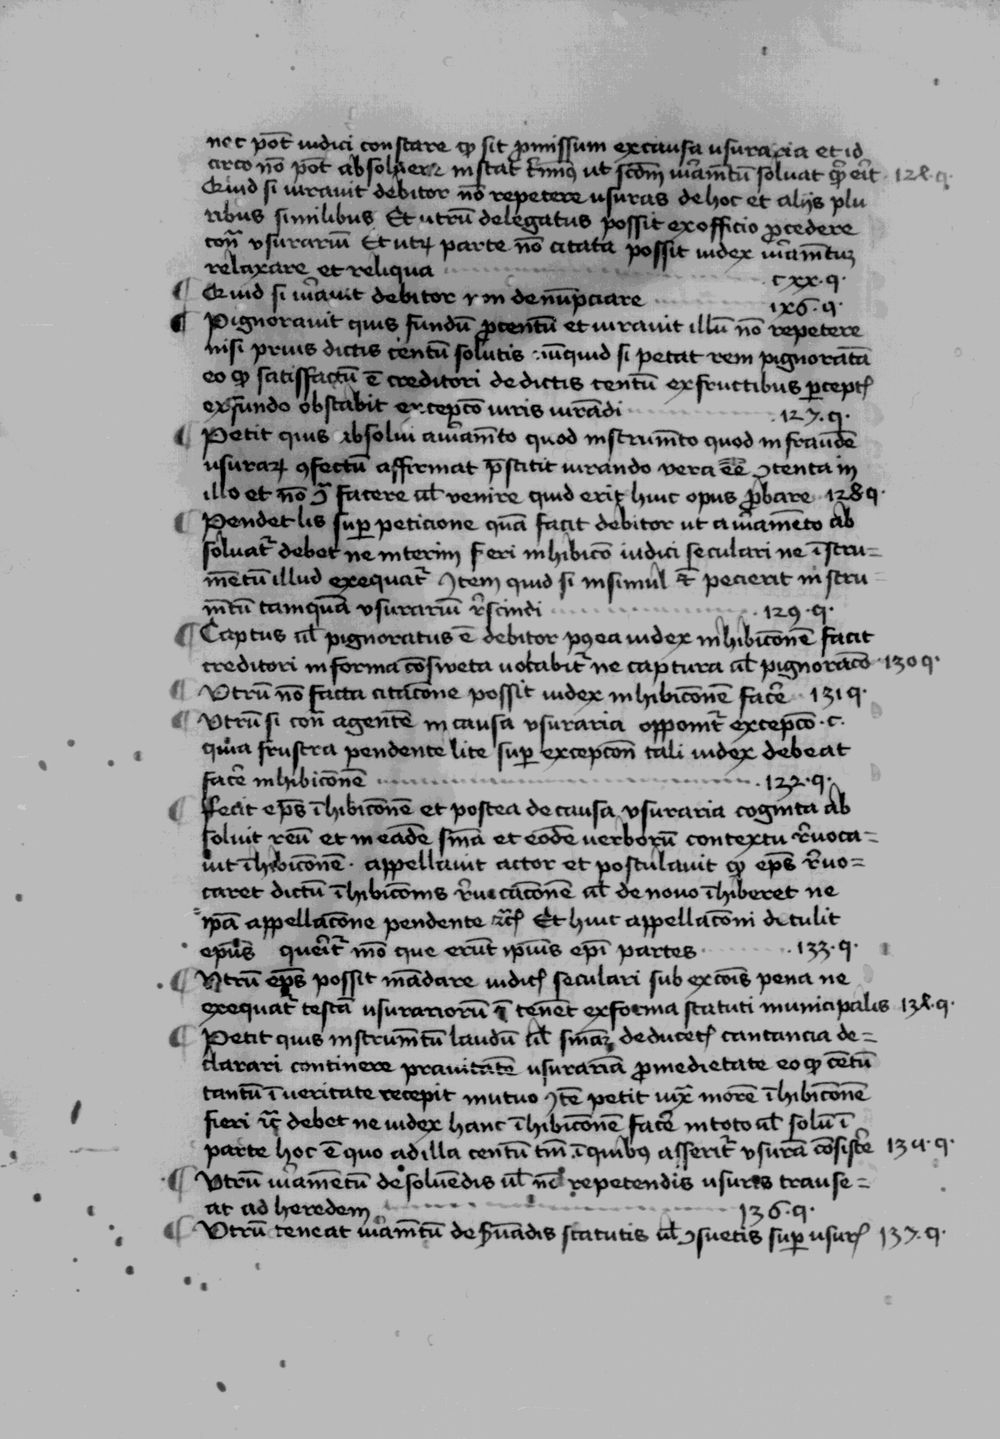 nec pōt iudici constare ꝙ sit ꝓmissum ex causa usuraria et id
circo nō pōt absoluere instat ut iuramētū soluat 124 q̄.
Quid si iurauit debitor nō repetere usuras de hoc et alijs plu
ribus similibus Et utrū delegatus possit ex officio ꝓcedere
cōn̄ usurariū Et utꝝ parte nō citata possit iudex iuramētuꝫ
relaxare et reliqua cxx. q̄.
¶ Quid si iurauit debitor denūpciare q̄.
¶ Pignorauit quis fundū ꝓ centū et iurauit illū nō repetere
nisi prius dictis centū solutis nūquid si petat rem pignoratā
eo ꝙ satisfactū ē creditori de dictis centū ex fructibus ꝑceptꝭ
ex fundo obstabit excepcō iuris iurādi 127. q̄.
¶ Petit quis absolui a iuramēto quod instrumēto quod in fraudē
usuraꝝ ꝯfectū affirmat prestitit iurando vera eē ꝯtenta in
illo et nō facere ul̄ venire quid erit huic opus ꝓbare 128 q̄.
¶ Pendet lis suꝑ peticione quā facit debitor ut a iuramēto ab
soluat̄ debet ne interim fieri inhibicō iudici seculari ne īstru=
mētū illud exequat̄ Item quid si insimul pecierit instru=
mētū tamquā vsurariū rescindi 129. q̄.
¶ Captus ul̄ pignoratus ē debitor postea iudex inhibicōnē facit
creditori in forma cōsweta uocabit̄ ne captura ul̄ pignoracō 130 q̄.
¶ Vtrū nō facta citacōne possit iudex inhibicōnē facē 131 q̄.
¶ Vtrū si cōn̄ agentē in causa vsuraria opponit̄ excepcō. c.
quia frustra pendente lite suꝑ excepcōn tali iudex debeat
facē inhibicōnē 132. q̄.
¶ Fecit ep̄s īhibicōnē et postea de causa vsuraria cognita ab
soluit reū et in eadē smā et eōdē verborū contextu reuoca=
uit īhibicōnē. appellauit actor et postulauit ꝙ ep̄s reuo=
caret dictū īhibicōnis reuocacōnē ul̄ de nouo īhiberet ne
ip̄a appellacōne pendente Et huic appellacōni detulit
ep̄us querit̄ mō que erūt ip̄ius ep̄i partes 133. q̄.
¶ Vtrū ep̄s possit mādare iudicꝭ seculari sub excōis pena ne
exequat̄ testā usurariorū tenet̄ ex forma statuti municipalis 134. q̄.
¶ Petit quis instrumētū laudū ul̄ smāꝫ de ducetꝭ de=
clarari continere prauitatē usurariā ꝓ medietate eo ꝙ cētū
tantū ī veritate recepit mutuo Itē petit morē īhibicōnē
fieri debet ne iudex hanc īhibicōnē facē in toto ul̄ solū ī
parte hoc ē quo ad illa centū tm̄ ī quibꝰ asserit̄ vsurā cōsistē 135. q̄.
¶ Vtrū iuramētū de soluēdis ul̄ nō repetendis usuris transe=
at ad heredem 136. q̄.
¶ Vtrū teneat iuramētū de seruādis statutis ul̄ ꝯsuetis suꝑ usurꝭ 137. q̄.